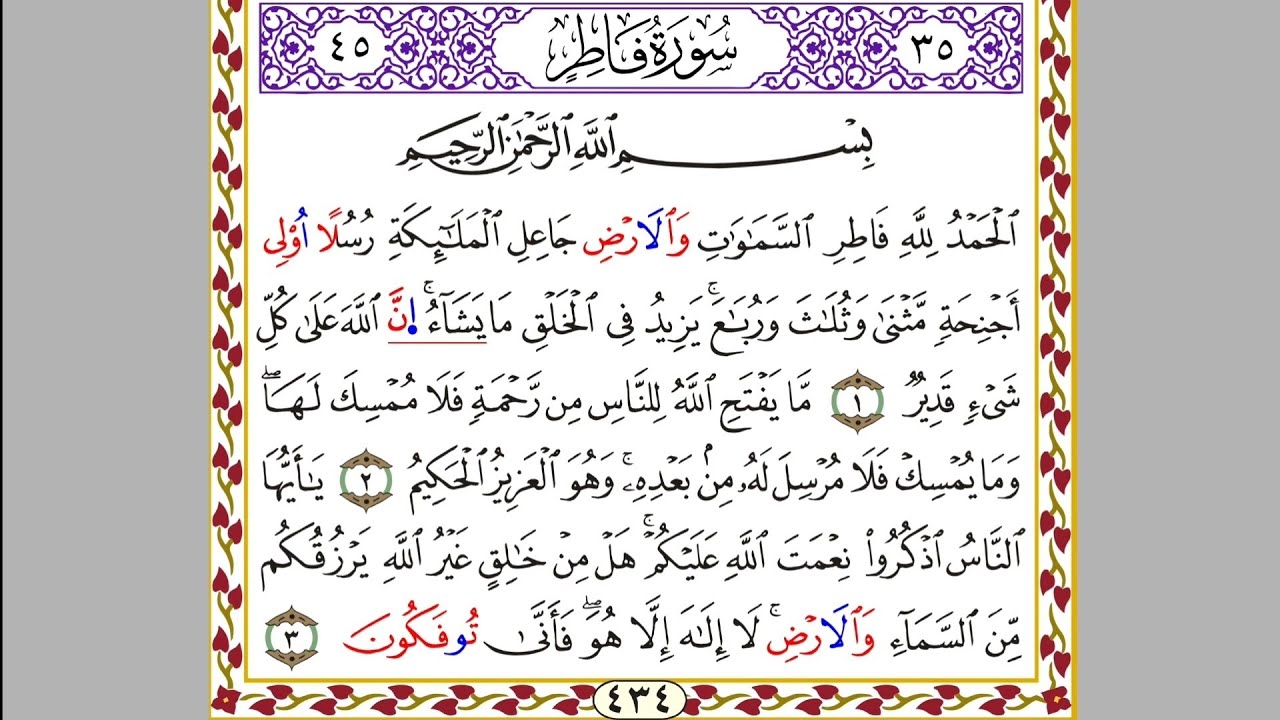 ٣٥ سُورَةُ فَاطِرٍ ٤٥
بِسْمِ ٱللَّهِ ٱلرَّحْمَٰنِ ٱلرَّحِيمِ
ٱلْحَمْدُ لِلَّهِ فَاطِرِ ٱلسَّمَٰوَٰتِ وَٱلَارْضِ جَاعِلِ ٱلْمَلَٰٓئِكَةِ رُسُلًا اُوْلِى
أَجْنِحَةٍ مَّثْنَىٰ وَثُلَٰثَ وَرُبَٰعَۚ يَزِيدُ فِى ٱلْخَلْقِ مَا يَشَآءُۚ اِنَّ ٱللَّهَ عَلَىٰ كُلِّ
شَىْءٍ قَدِيرٌ ١ مَّا يَفْتَحِ ٱللَّهُ لِلنَّاسِ مِن رَّحْمَةٍ فَلَا مُمْسِكَ لَهَاۖ
وَمَا يُمْسِكْ فَلَا مُرْسِلَ لَهُۥ مِنۢ بَعْدِهِۦۚ وَهُوَ ٱلْعَزِيزُ ٱلْحَكِيمُ ٢ يَٰٓأَيُّهَا
ٱلنَّاسُ ٱذْكُرُوا۟ نِعْمَتَ ٱللَّهِ عَلَيْكُمْۚ هَلْ مِنْ خَٰلِقٍ غَيْرُ ٱللَّهِ يَرْزُقُكُم
مِّنَ ٱلسَّمَآءِ وَٱلَارْضِۚ لَآ إِلَٰهَ إِلَّا هُوَۖ فَأَنَّىٰ تُوفَكُونَ ٣
٤٣٤